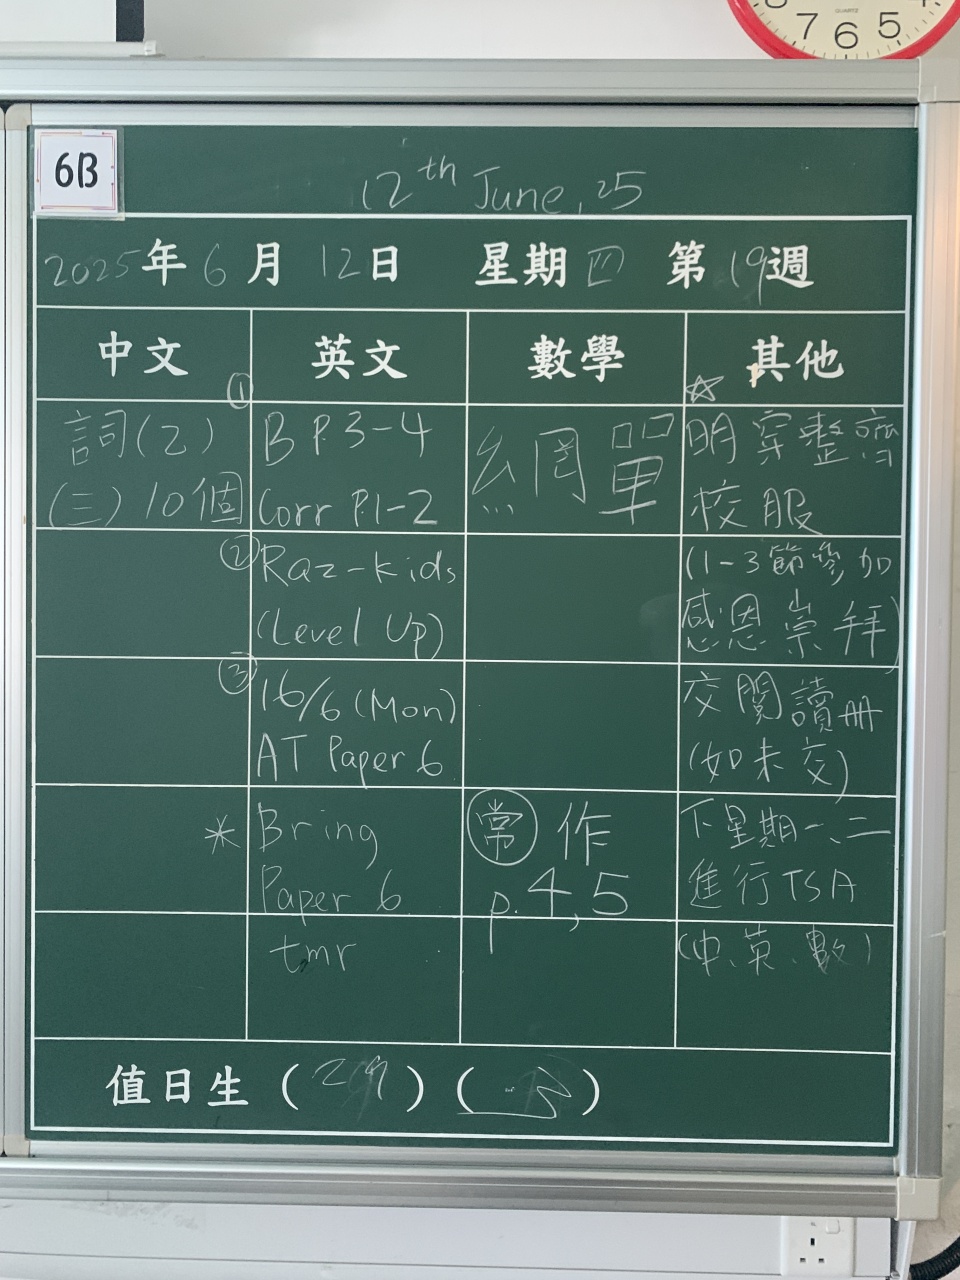 QUARTZ
8 7 6 5 4
6B
12th June, 25
2025年6月12日 星期四 第19週
中文 英文 數學 其他
詞(乙)
(三) 10個
① B P.3-4
Corr P.1-2
② Raz-kids
(Level Up)
③ 16/6 (Mon)
AT Paper 6
* Bring
Paper 6
tmr
網單
常 作
p.4,5
☆ 明穿整齊
校服
(1-3節參加
感恩崇拜)
交閱讀冊
(如未交)
下星期一、二
進行TSA
(中、英、數)
值日生 ( ) ( )